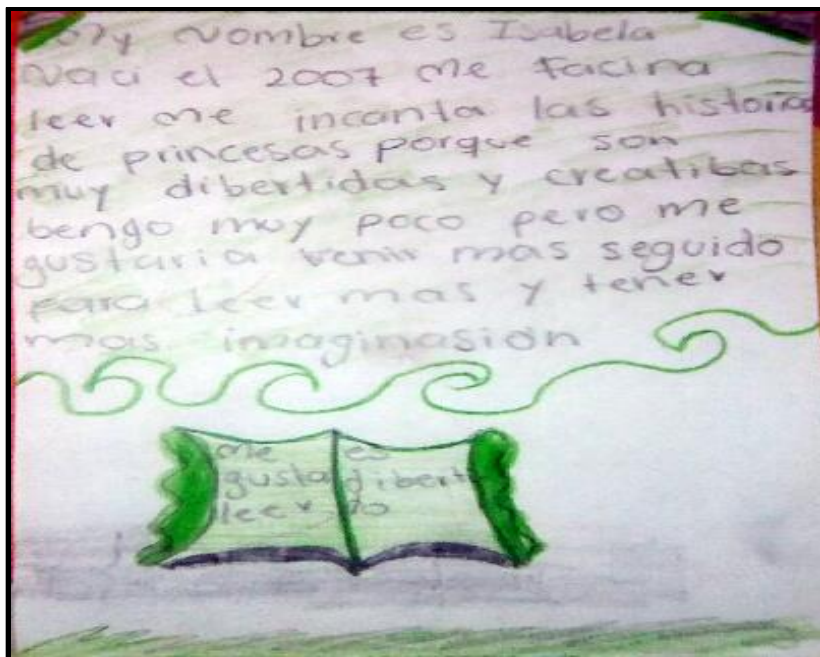 My Nombre es Isabela
Naci el 2007 me facina
leer me incanta las historias
de princesas porque son
muy dibertidas y creatibas
bengo muy poco pero me
gustaria venir mas seguido
para leer mas y tener
mas imaginasión
me
gusta
leer
es
diberti
do